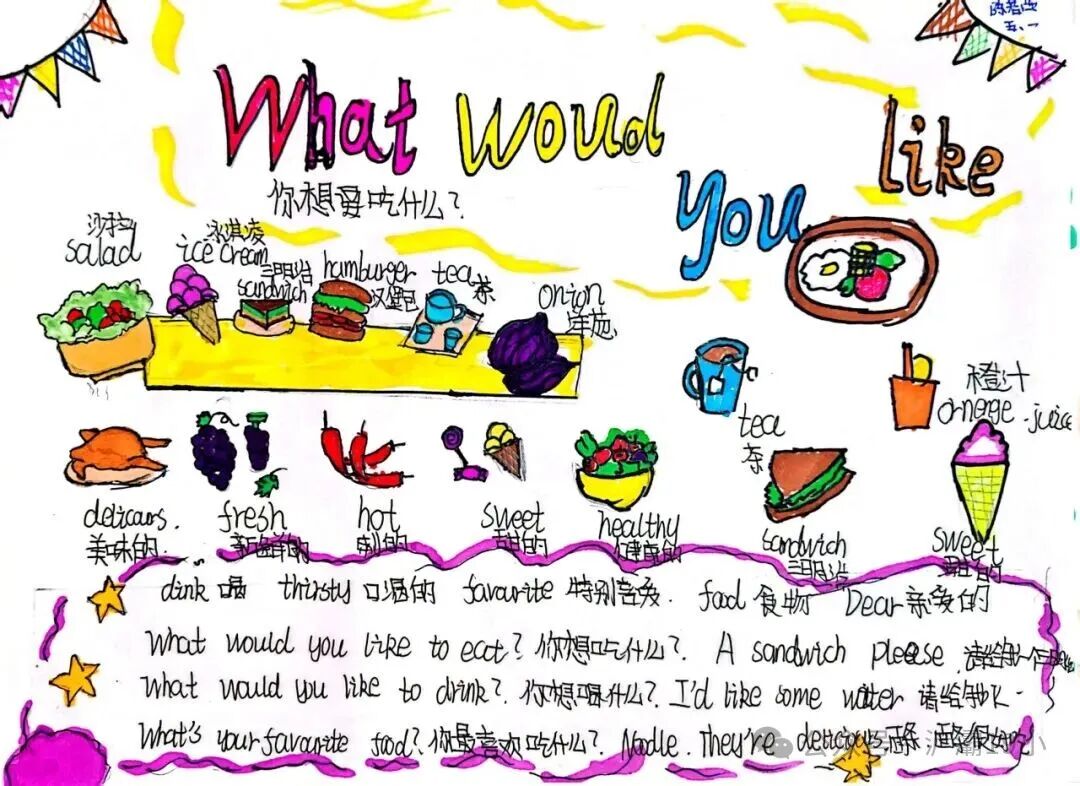 五、一
What Woud
like
you
你想要吃什么?
沙拉
salad
冰淇凌
ice cream
三明治
sandwich
hamburger
汉堡包
tea
茶
onion
洋
tea
茶
橙汁
juice
delicaurs.
美味的.
fresh
新鲜的
hot
辣的
sweet
甜的
healthy
健康的
sandwich
三明治
sweet
甜的
dink 喝 thirsty 口渴的 favourite 特别喜爱. food 食物 Dear 亲爱的
What would you like to eat? 你想吃什么? A sandwich please. 请给我一个
What would you like to drink? 你想喝什么? I'd like some water 请给我
What's your favourite food? 你最喜欢吃什么? Noodle. They're delicious